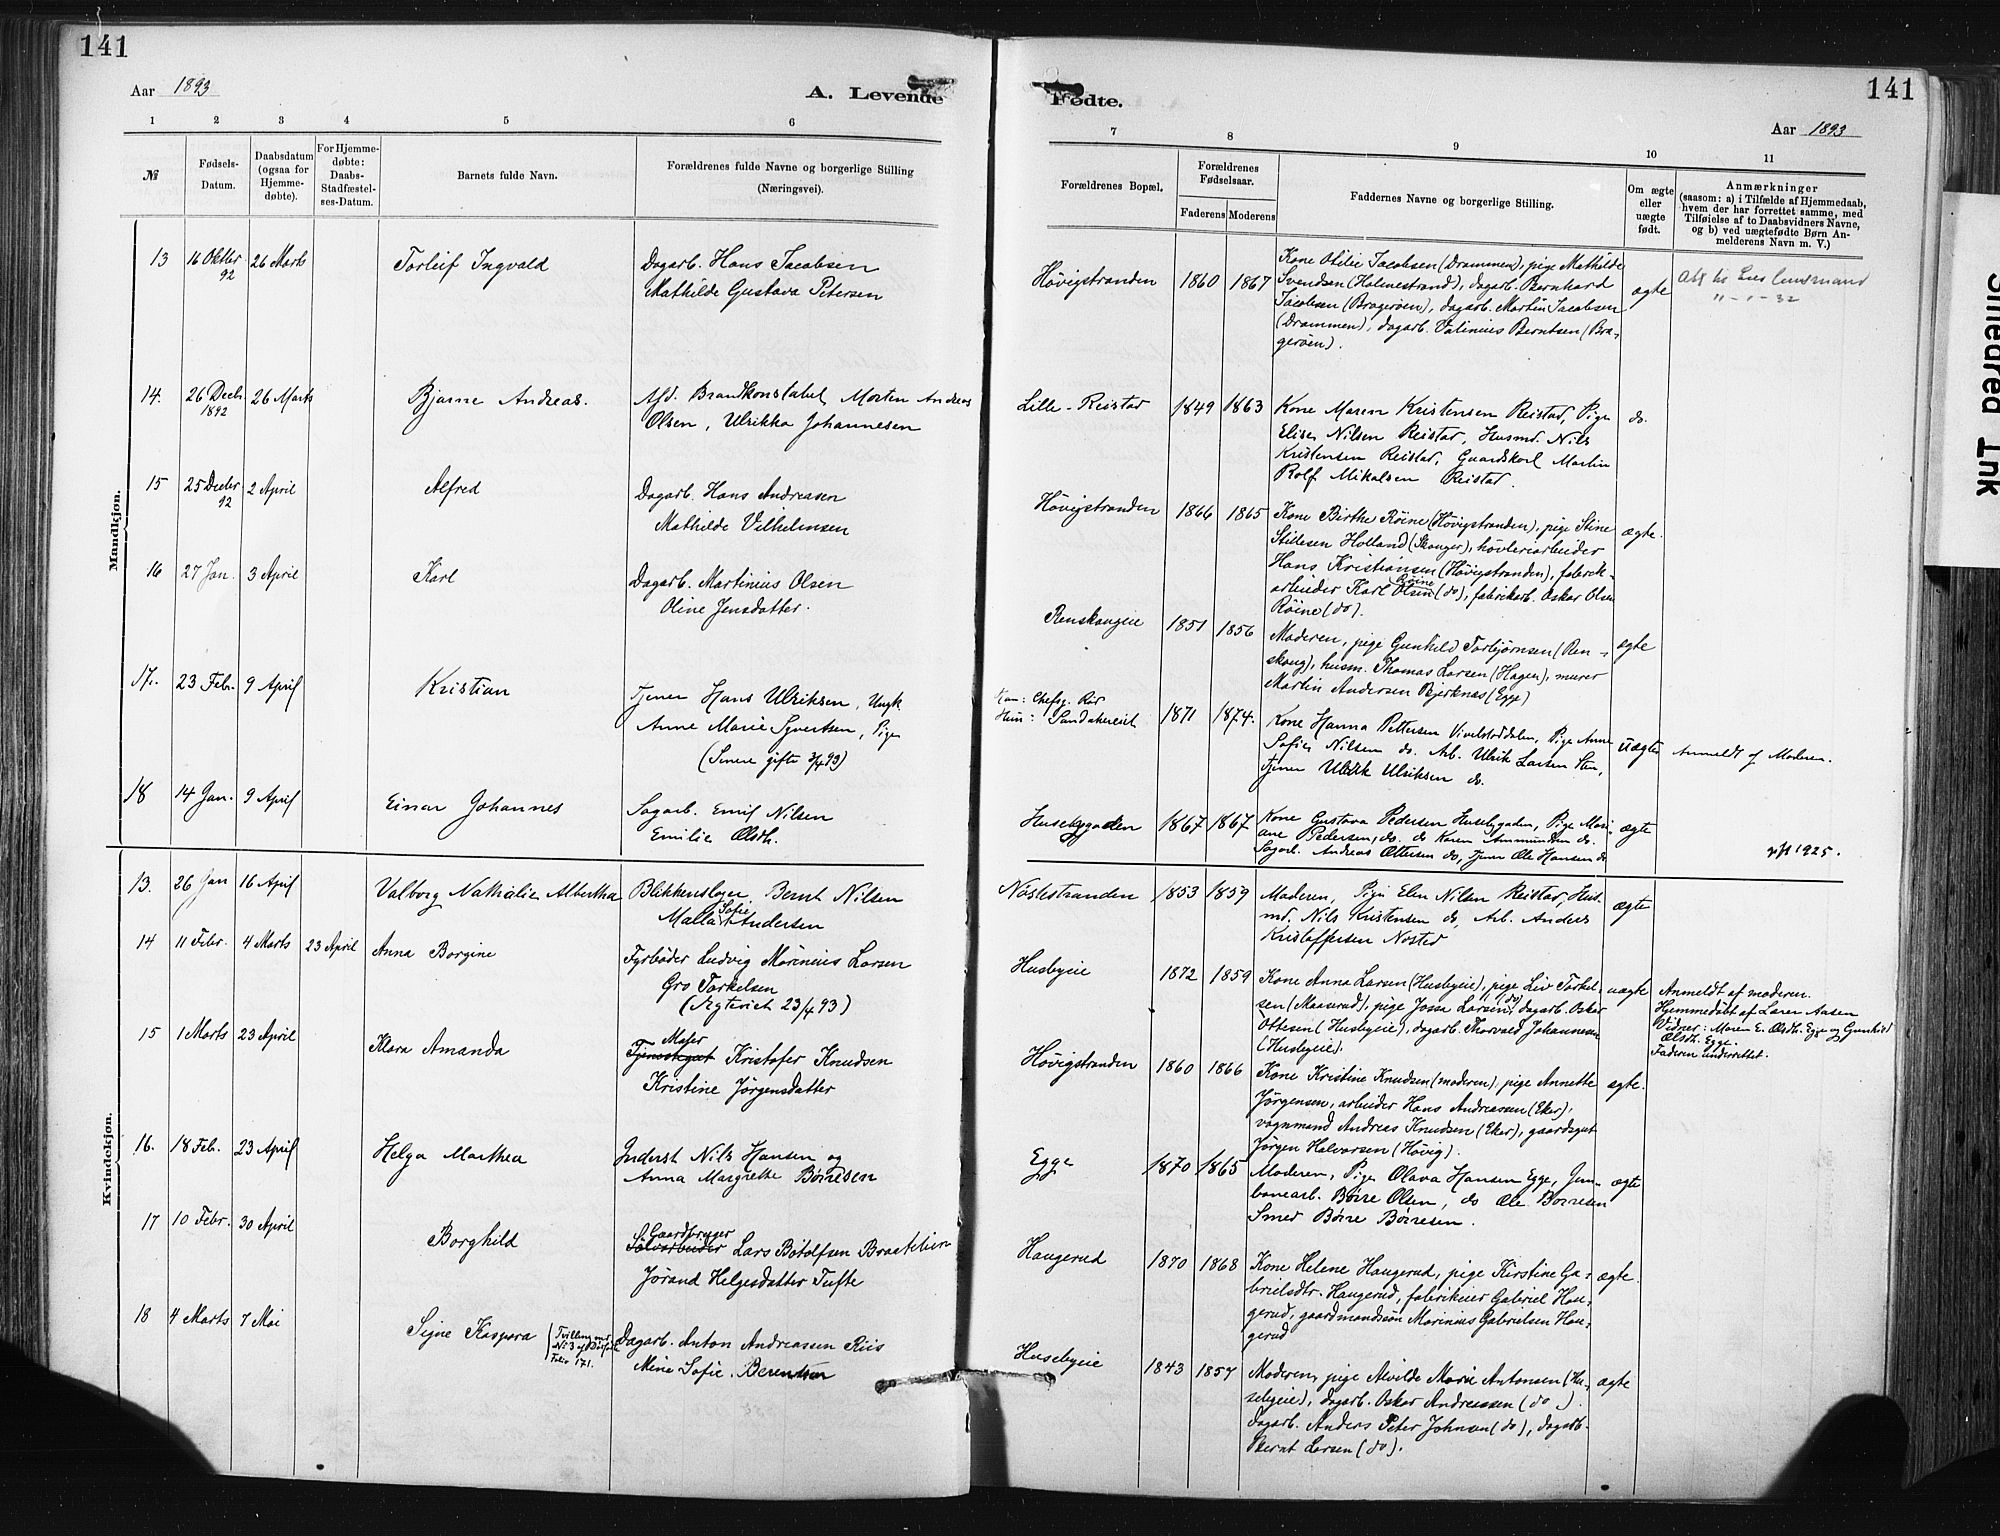 141
Aar 1893
A. Levende
1 2 3 4 5 6
№
Fødsels-Datum.
Daabsdatum (ogsaa for Hjemme-døbte).
For Hjemme-døbte: Daabs-Stadfæstel-ses-Datum.
Barnets fulde Navn.
Forældrenes fulde Navne og borgerlige Stilling (Næringsvei).
Mandkjøn.
13 16 Oktbr 92 26 Marts Torleif Ingvald Dagarb. Hans Jacobsen
Mathilde Gustava Petersen
14. 26 Decbr. 1892 26 Marts Bjarne Andreas. Afd. Brandkonstabel Morten Andreas
Olsen, Ulrikka Johannesen
15 25 Decbr 92 2 April Alfred Dagarb. Hans Andreasen
Mathilde Vilhelmsen
16 27 Jan. 3 April Karl Dagarb. Martinius Olsen
Oline Jensdatter.
17. 23 Feb. 9 April Kristian Tjener Hans Ulriksen, Ungk.
Anne Marie Syvertsen, Pige
(Senere gifte 3/4 93)
18 14 Jan. 9 April Einar Johannes Sagarb. Emil Nilsen
Emilie Olsdt.
Kvindekjøn.
13. 26 Jan 16 April Valborg Nathalie Albertha Blikkenslager Bernt Nilsen
Malla Sofie Andersen
14 11 Febr. 4 Marts 23 April Anna Borgine Fyrbøder Ludvig Marinius Larsen
Gro Torkelsen
(Ægteviet 23/4 93)
15 1 Marts 23 April Klara Amanda Maler
Tjenestegut Kristofer Knudsen
Kristine Jørgensdatter
16. 18 Feb. 23 April Helga Marthea Inderst Nils Hansen og
Anna Margrethe Børresen
17 10 Febr. 30 April Borghild S. Gaardbryger
Sølvarbeider Lars Botolfsen Braatelien
Jørand Helgesdatter Tufte
18 4 Marts 7 Mai Signe Kaspara (Tvilling med
No 3 af Dødføt
Folio 171. Dagarb. Anton Andreassen Riis
Mina Sofie Berentsen
141
Fødte.
Aar 1893
7 8 9 10 11
Forældrenes Bopæl.
Forældrenes Fødselsaar.
Faderens Moderens
Faddernes Navne og borgerlige Stilling.
Om ægte eller uægte født.
Anmærkninger
(saasom: a) i Tilfælde af Hjemmedaab, hvem der har forrettet samme, med Tilføielse af to Daabsvidners Navne, og b) ved uægtefødte Børn An-melderens Navn m. V.)
Høvigstranden 1860 1867 Kone Otilie Jacobsen (Drammen), pige Mathilde
Svendsen (Holmestrand), dagarb. Bernhard
Jacobsen (Bragerøen), dagarb. Martin Jacobsen
(Drammen), dagarb. Valinius Berntsen (Bra-
gerøen). ægte
11-1-32
Lille-Reistad 1849 1863 Kone Maren Kristensen Reistad, Pige
Elise Nilsen Reistad, Husmd. Nils
Kristensen Reistad, Gaardskarl Martin
Rolf Mikalsen Reistad. do.
Høvigstranden 1866 1865 Kone Birthe Røine (Høvigstranden), pige Stine
Stillesen Holland (Skouger), høvleriarbeider
Hans Kristiansen (Høvigstranden), fabrik-
arbeider Karl Olsen Røine (do), fabrikarb. Oskar Olsen
Røine (do). ægte.
Renskougeie 1851 1856 Moderen, pige Gunhild Torbjørnsen (Ren-
skoug), husm. Thomas Larsen (Hagen), murer
Martin Andersen Bjerknæs (Egge) ægte
Han: Chefsg. Rør
Hun: Sandakereiet 1871 1874. Kone Hanna Pettersen Vivelstaddalen, Pige Anne
Sofie Nilsen do. Arb. Ulrik Larsen Sten,
Tjener Uldrik Ulriksen do. uægte Anmeldt af Moderen.
Husebygaden 1867 1867 Kone Gustava Pedersen Husebygaden, Pige Mari-
ane Pedersen, do. do Karen Ammundsen do.
Sagarb. Andreas Ottersen do, Tjener Ole Hansen do ægte 1925.
Nøstestranden 1853 1859 Moderen, Pige Elen Nilsen Reistad, Hus-
md. Nils Kristensen do, Arb. Anders
Kristoffersen Nøsted ægte
Husbyeie 1872 1859 Kone Anna Larsen (Husbyeie), pige Liv Torkel-
sen (Maaserud), pige Jossa Larsen (do), dagarb. Oskar
Ottesen (Husbyeie), dagarb. Thorvald Johannesen
(Husbyeie). uægte Anmeldt af moderen.
Hjemmedøbt af Lærer Aasen
Vidner: Maren E. Olsdt. Egge og Gunhild
Olsdt. Egge.
Faderen underrettet.
Høvigstranden 1860 1866 Kone Kristine Knudsen (moderen), pige Annette
Jørgensen, arbeider Hans Andreassen (Eker),
vognmand Andreas Knudsen (Eker), gaardsgut
Jørgen Halvorsen (Høvig). ægte.
Egge 1870 1865 Moderen, Pige Olava Hansen Egge, Jern-
banearb. Børre Olsen, do Ole Børresen
Smed Børre Børresen. ægte
Haugerud 1870 1868 Kone Helene Haugerud, pige Kirstine Ga-
brielsdtr. Haugerud, fabrikeier Gabriel Hau-
gerud, gaardmandssøn Marinius Gabrielsen Hau-
gerud ægte.
Husebyeie 1843 1857 Moderen, pige Alvilde Marie Antonsen (Hu-
sebyeie), dagarb. Oskar Andreassen (do).
dagarb. Anders Peter Johnsen (do), dagarb.
Bernt Larsen (do). ægte
Smeared Ink